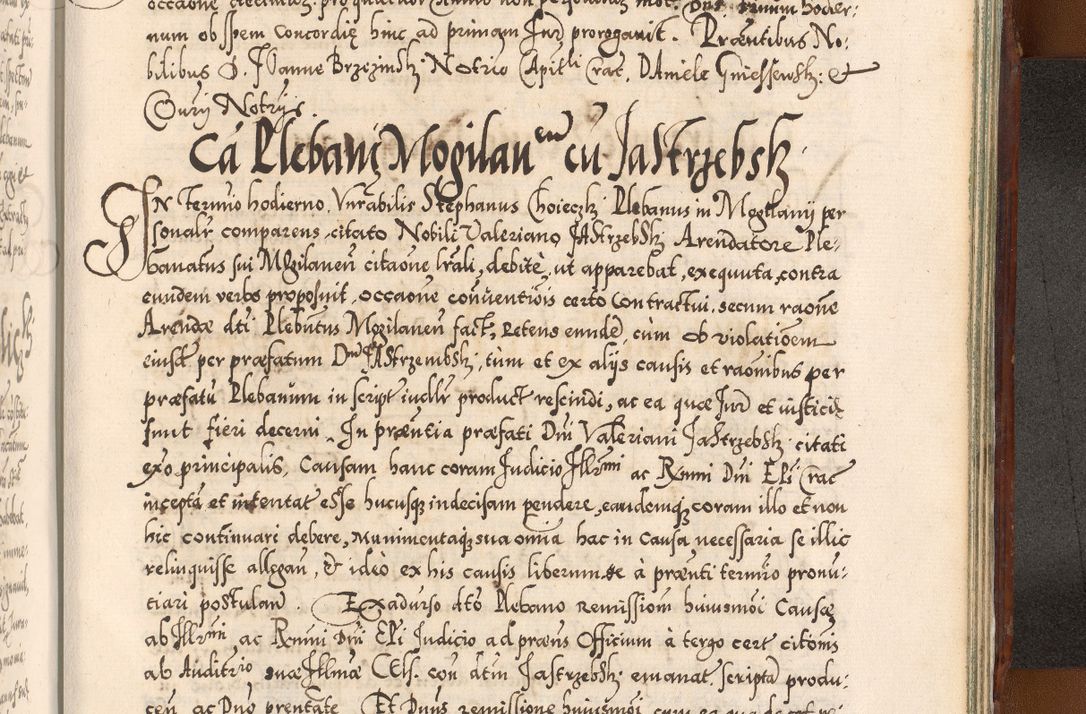 num ob spem Concordię hinc ad primam Jurd prorogavit. Præsentibus No:
bilibus D. JOanne Brzezinsk: Notrio Capitli Crac. DAniele Gniessewsk: et
Curij Notrijs.
Ca Plebani Mogilanen cu JaStrzebsk:
IN Termio hodierno. Vnrabilis Stephanus Choieczk: Plebanus in Mogilanij per
sonalr comparens, citato Nobili Valeriano JAStrzebsk: Arendatore Ple:
banatus sui MOgilanen citaone lrali, debitè, ut apparebat, exequuta, contra
eundem verbo proposuit, occaone conventiois certo Contractui, secum raone
Arendæ dti Plebntus Mogilanen fact, Petens eundē, cùm ob violatioem
eiusd per præfatum Dnm JAStrzembsk: tùm et ex alijs causis et raonibus per
præfatū Plebanum in script iudllr product rescindi, ac ea quæ Jur et iusticiæ
sunt fieri decerni. In præntia præfati Dni Valeriani JaStrzebsk: citati
exo principalis, Causam hanc coram Judicio Illrmi ac Rmi Dni EPi Crac
incepta et intentat eSse hucusq indecisam pendere, eandemq coram illo et non
hic continuari debere, Munimentaq sua omnia hac in Causa necessaria se illic
relinquisse allegan, et ideò ex his causis liberum se à prænti termio pronu:
tiari postulan. Ex adverso dto Plebano remissiom huiusmoi Causæ
ab Illrmi ac Rmi Dni EPi Iudicio ad præns Officium à tergo cert citonis
ab Auditrio suæ Illmæ Cels. con dtm JaStrzebsk: emanat, scripta produ:
cen ac Dno prentate. Et Dnus remissione huiusmoi